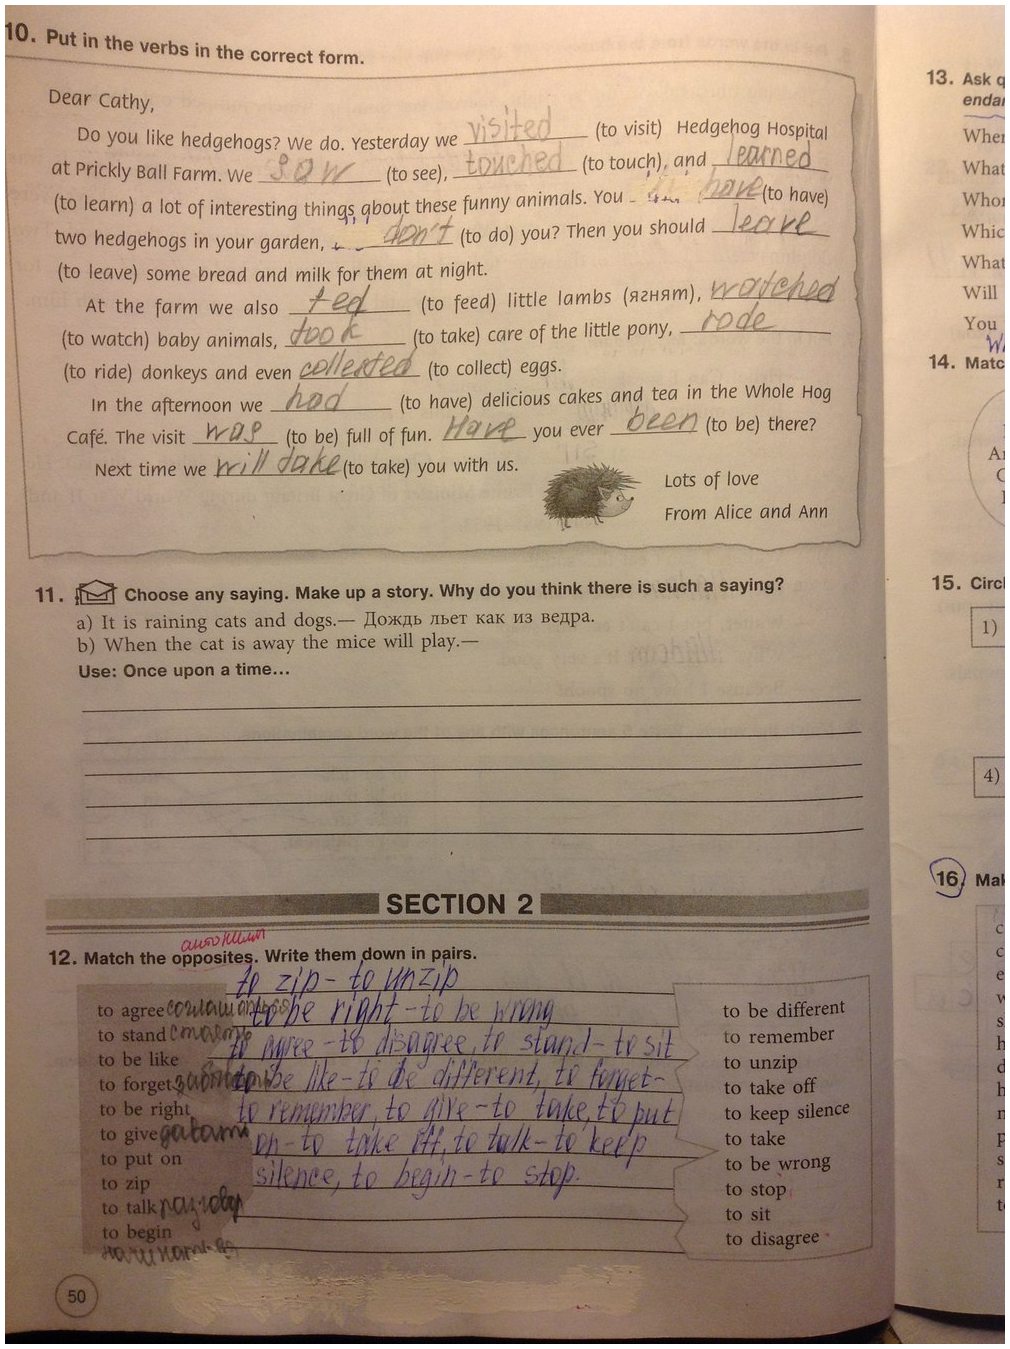 10. Put in the verbs in the correct form.
Dear Cathy,
Do you like hedgehogs? We do. Yesterday we visited (to visit) Hedgehog Hospital
at Prickly Ball Farm. We saw (to see), touched (to touch), and learned
(to learn) a lot of interesting things about these funny animals. You have (to have)
two hedgehogs in your garden, don't (to do) you? Then you should leave
(to leave) some bread and milk for them at night.
At the farm we also fed (to feed) little lambs (ягням), watched
(to watch) baby animals, took (to take) care of the little pony, rode
(to ride) donkeys and even collected (to collect) eggs.
In the afternoon we had (to have) delicious cakes and tea in the Whole Hog
Café. The visit was (to be) full of fun. Have you ever been (to be) there?
Next time we will take (to take) you with us.
Lots of love
From Alice and Ann
11. Choose any saying. Make up a story. Why do you think there is such a saying?
a) It is raining cats and dogs.— Дождь льет как из ведра.
b) When the cat is away the mice will play.—
Use: Once upon a time...
SECTION 2
12. Match the opposites. Write them down in pairs.
to agree
to stand
to be like
to forget
to be right
to give
to put on
to zip
to talk
to begin
to zip - to unzip
to be right - to be wrong
to agree - to disagree, to stand - to sit
to be like - to be different, to forget -
to remember, to give - to take, to put
on - to take off, to talk - to keep
silence, to begin - to stop.
to be different
to remember
to unzip
to take off
to keep silence
to take
to be wrong
to stop
to sit
to disagree
50
13. Ask
14.
15.
1)
4)
16.